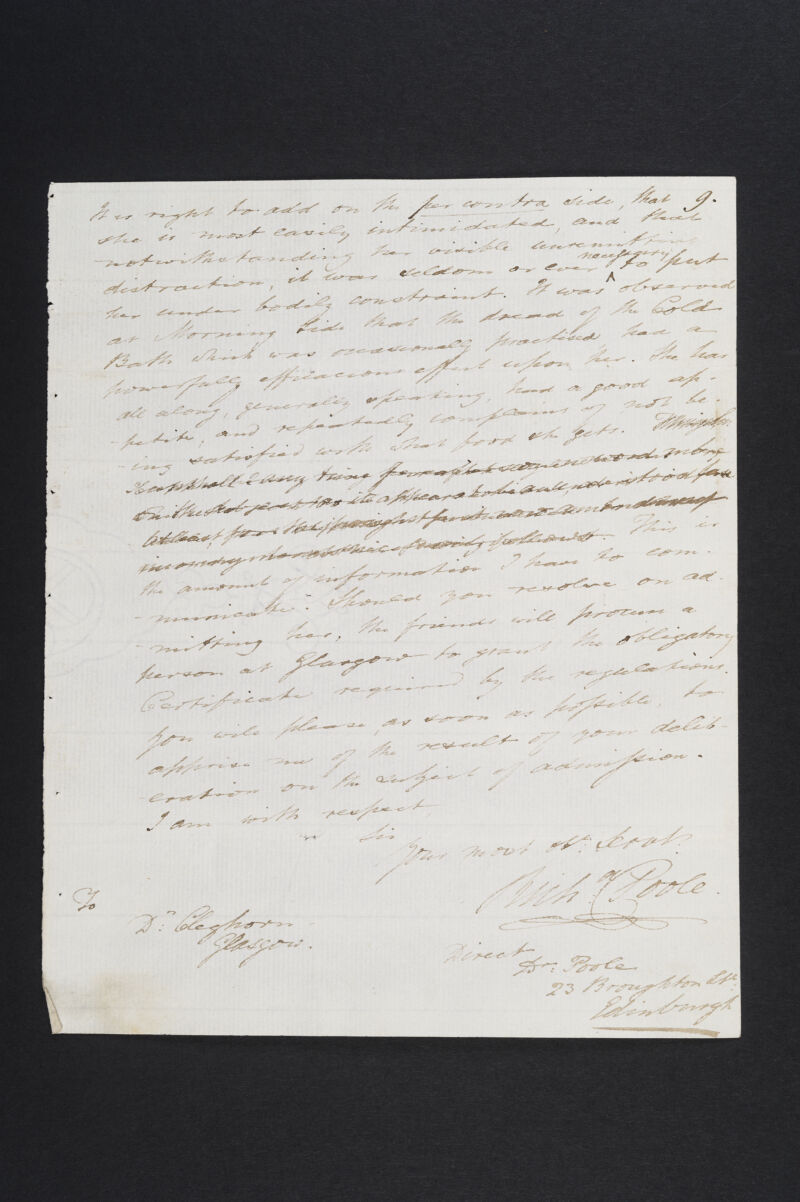 9.
It is right to add on the per contra side, that
she is most easily intimidated, and that
notwithstanding her visible unremitting
distraction, it was seldom or ever necessary to put
her under bodily constraint. It was observed
at Morning Side that the dread of the Cold
Bath which was occasionally practised had a
powerfully efficacious effect upon her. She has
all along, generally speaking, had a good ap-
-petite, and repeatedly complains of not be-
-ing satisfied with what food she gets.
This is
the amount of information I have to com-
-municate. Should you resolve on ad-
-mitting her, the friends will procure a
person at Glasgow to grant the obligatory
Certificate required by the regulations.
You will please, as soon as possible, to
apprise me of the result of your delib-
-eration on the subject of admission.
I am with respect,
Sir
Your most Obt. Servt.
Richd. Poole.
To
Dr. Cleghorn
Glasgow.
Direct
Dr. Poole
23 Broughton Str.
Edinburgh